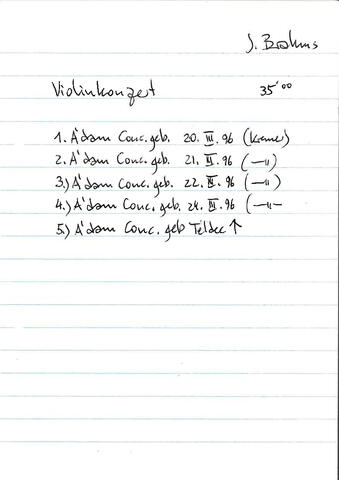 J. Brahms
Violinkonzert 35'00
1. A'dam Conc. geb. 20. III. 96 (Kremer)
2. A'dam Conc. geb. 21. III. 96 (—〃)
3.) A'dam Conc. geb. 22. III. 96 (—〃)
4.) A'dam Conc. geb. 24. III. 96 (—〃—
5.) A'dam Conc. geb Teldec ↑